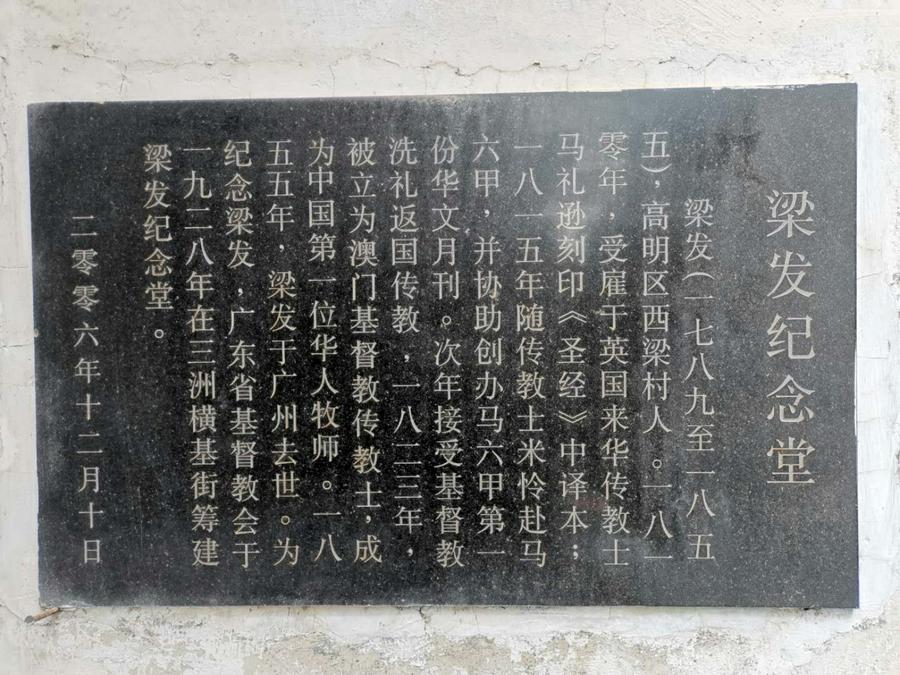 梁发纪念堂
梁发(一七八九至一八五
五),高明区西梁村人。一八一
零年,受雇于英国来华传教士
马礼逊刻印《圣经》中译本;
一八一五年随传教士米怜赴马
六甲,并协助创办马六甲第一
份华文月刊。次年接受基督教
洗礼返国传教,一八二三年,
被立为澳门基督教传教士,成
为中国第一位华人牧师。一八
五五年,梁发于广州去世。为
纪念梁发,广东省基督教会于
一九二八年在三洲横基街筹建
梁发纪念堂。
二零零六年十二月十日